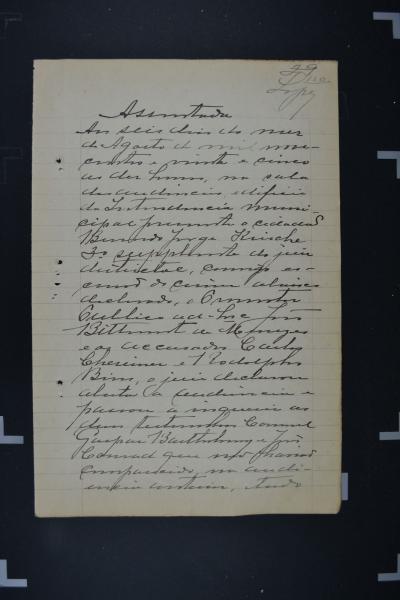 Assentada
Aos seis dias do mez
de Agosto de mil nove
centos e vinte e cinco
as dez horas, na sala
das audiencias, edificio
da Intendencia Muni-
cipal presente o cidadão
Bernardo Jorge
3º supplente do juiz
districtal, commigo es-
crivão do crime abaixo
declarado, o Promotor
Publico ad-hoc José
Bittencourt de Menezes
e os accusados Carlos
e Rodolpho
o juiz declarou
aberta a audiencia e
passou a inquerir as
duas testemunhas Coronel
Gaspar Bartholomay e José
Conrad que não haviam
comparecido, na audi-
encia anterior, tendo